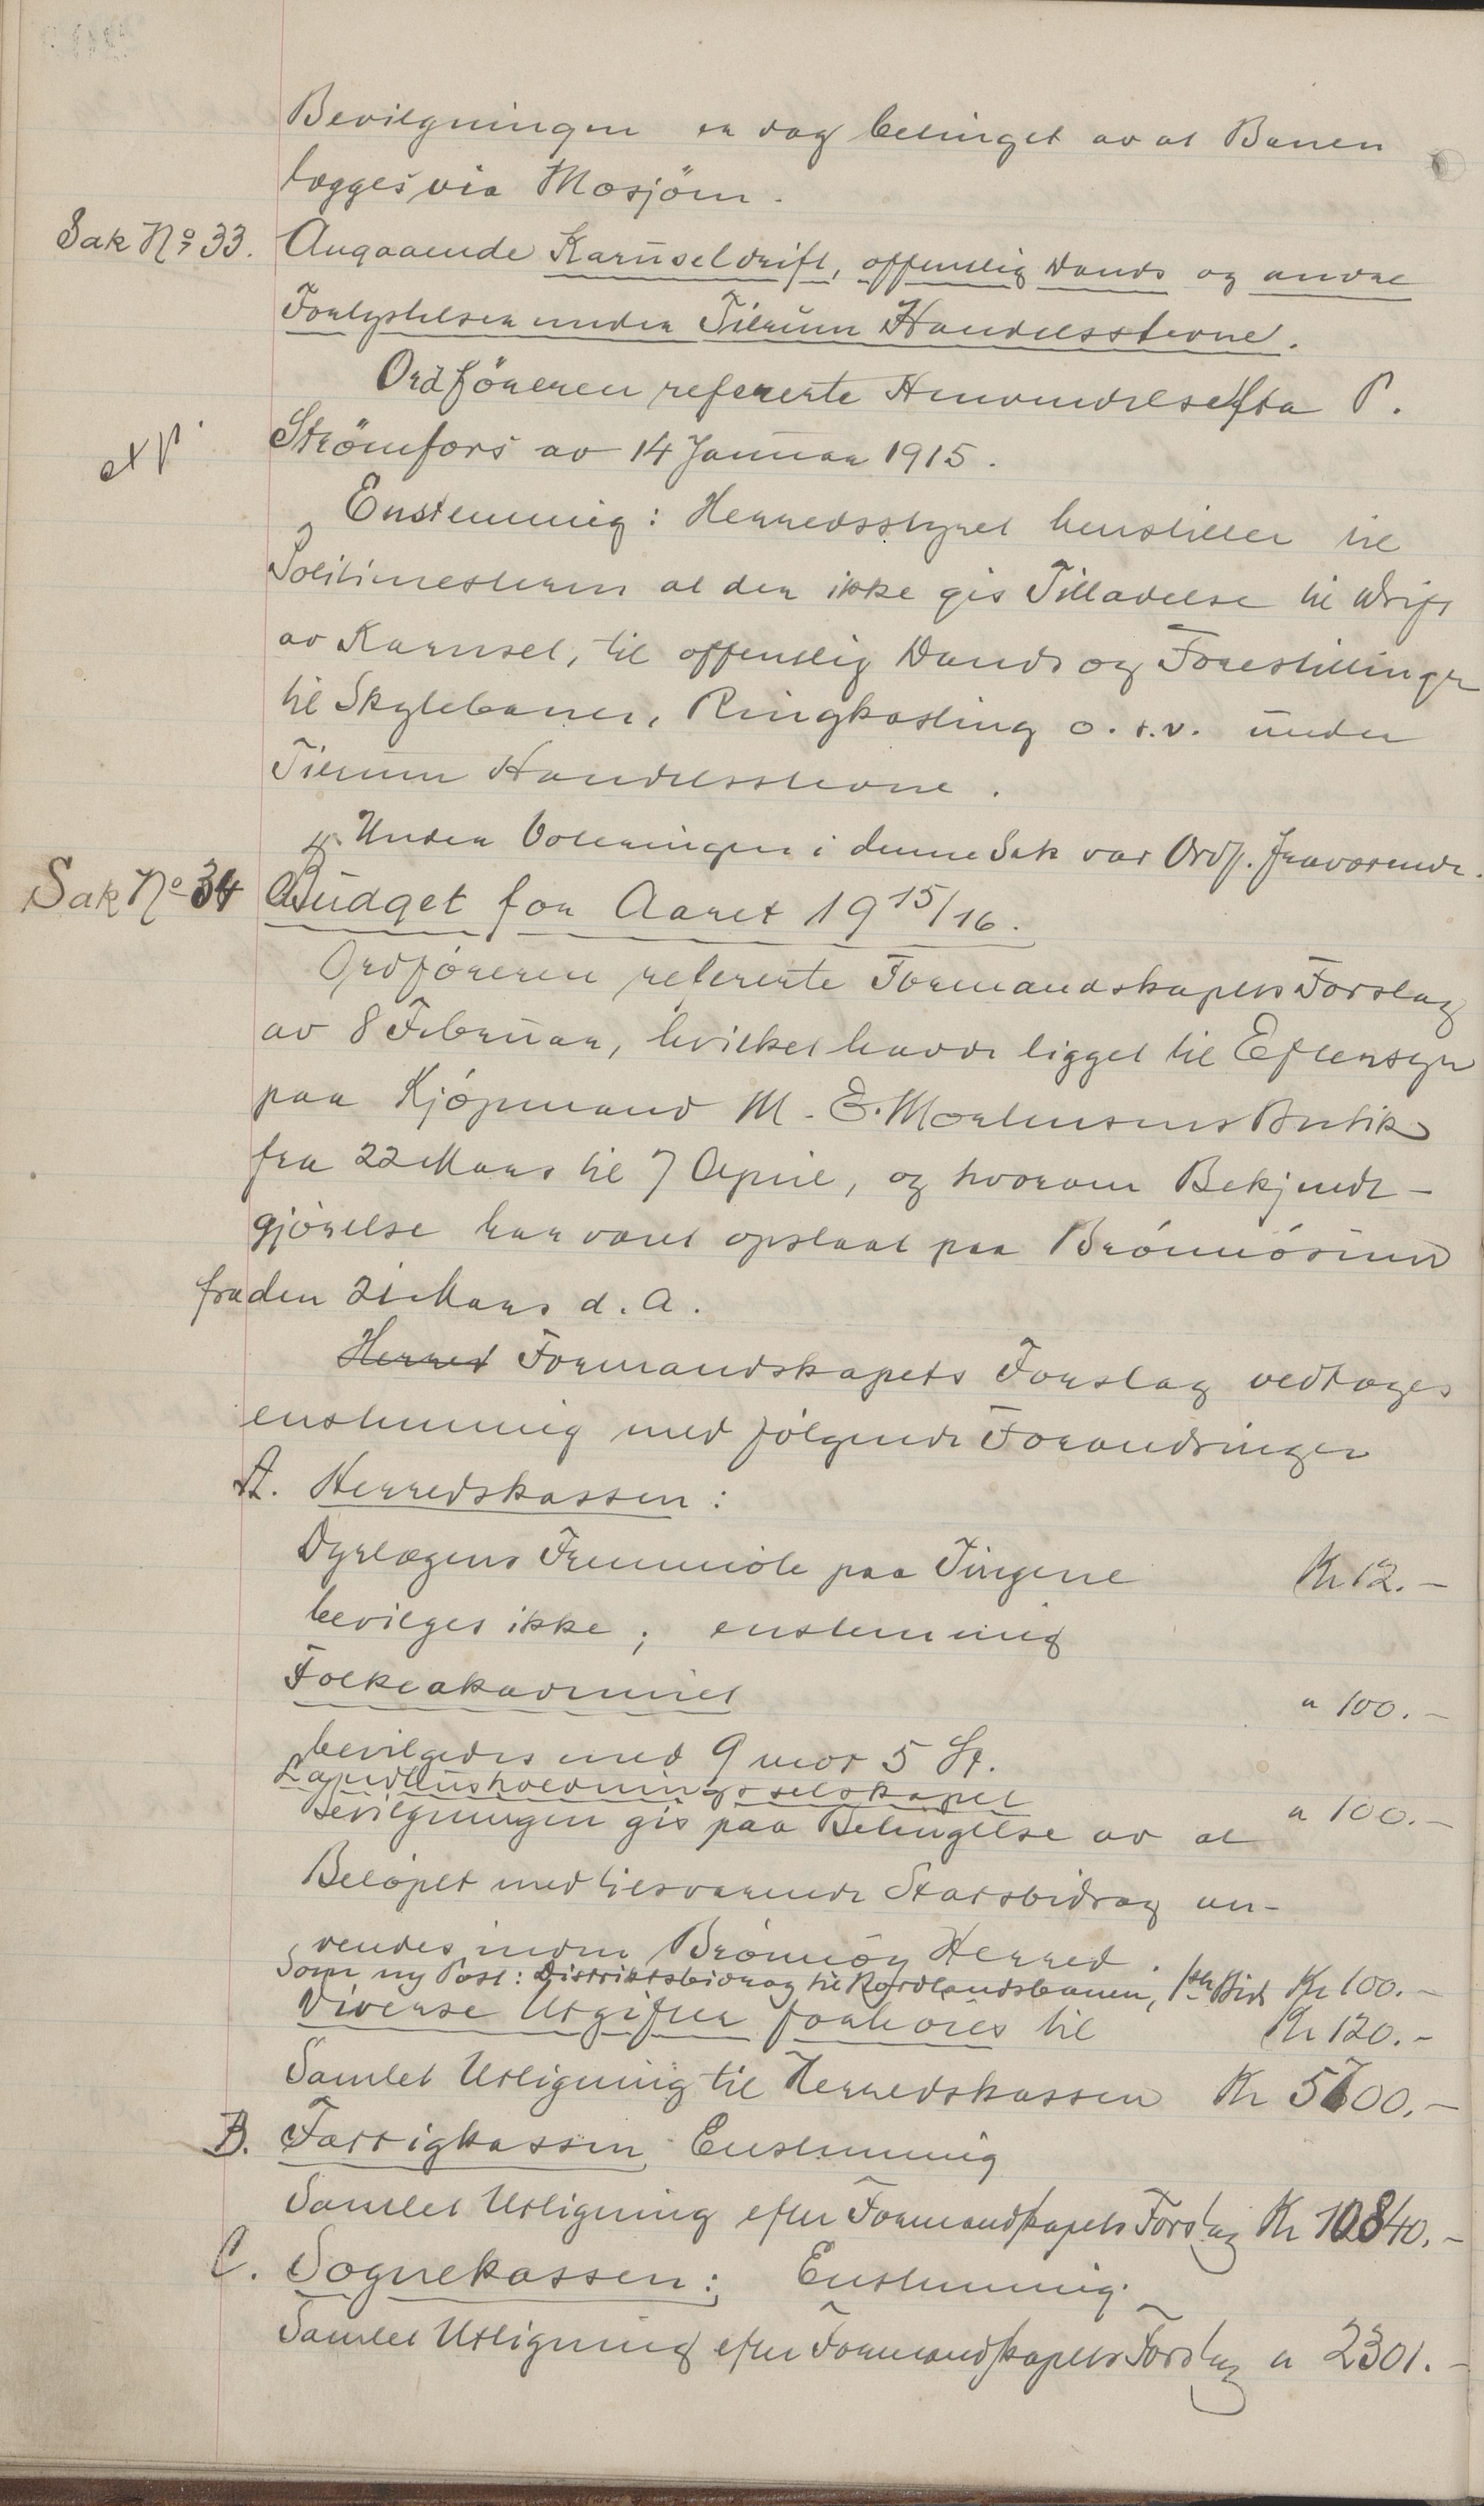 Bevilgningen er dog betinget av at Banen
lægges via Mosjöen.
Sak No 33. Angaaende Karüseldrift, offentlig Dands og andre
Forlystelser under Tilrüm Handelsstevne.
Ordföreren refererte Henvendelse fra P.
exp. Strömfors av 14 Januar 1915.
Enstemmig: Herredsstyret henstiller til
Politimesteren at der ikke gis Tilladelse til Drift
av Karusel, til offentlig Dands og Forestillinger
til Skytebaner, Ringkasting o.s.v. under
Tilrum Handelsstevne.
Under Voteringen i denne Sak var Ordf. fraværende.
Sak No 34 Büdget for Aaret 1915/16.
Ordföreren refererte Formandskapets Forslag
av 8 Februar, hvilket havde ligget til Eftersyn
paa Kjöpmand M. E. Mortensens Butik
fra 22 Mars til 7 April, og hvorom Bekjendt-
gjörelse har været opslaat paa Brönnösund
fra den 21 Mars d. A.
Herred Formandskapets Forslag vedtoges
enstemmig med fölgende Forandringer
A. Herredskassen:
Dyrlægens Fremmöte paa Tingene Kr 12.-
bevilges ikke; enstemmig
Folkeakademiet " 100.-
bevilgedes med 9 mot 5 St.
Landhusholdningsselskapet
Bevilgningen gis paa Betingelse av at " 100.-
Belöpet med tilsvarende Statsbidrag an-
vendes inden Brönnöy Herred.
Som ny Post: Distriktsbidrag til Nordlandsbanen, 1ste Bid Kr 100.-
Diverse Utgifter forhöies til Kr 120.-
Samlet Utligning til Herredskassen Kr 5700.-
B. Fattigkassen Enstemmig
Samlet Utligning efter Formandskapets Forslag Kr 10840.-
C. Sognekassen: Enstemmig.
Samlet Utligning efter Formandskapets Forslag " 2301.-